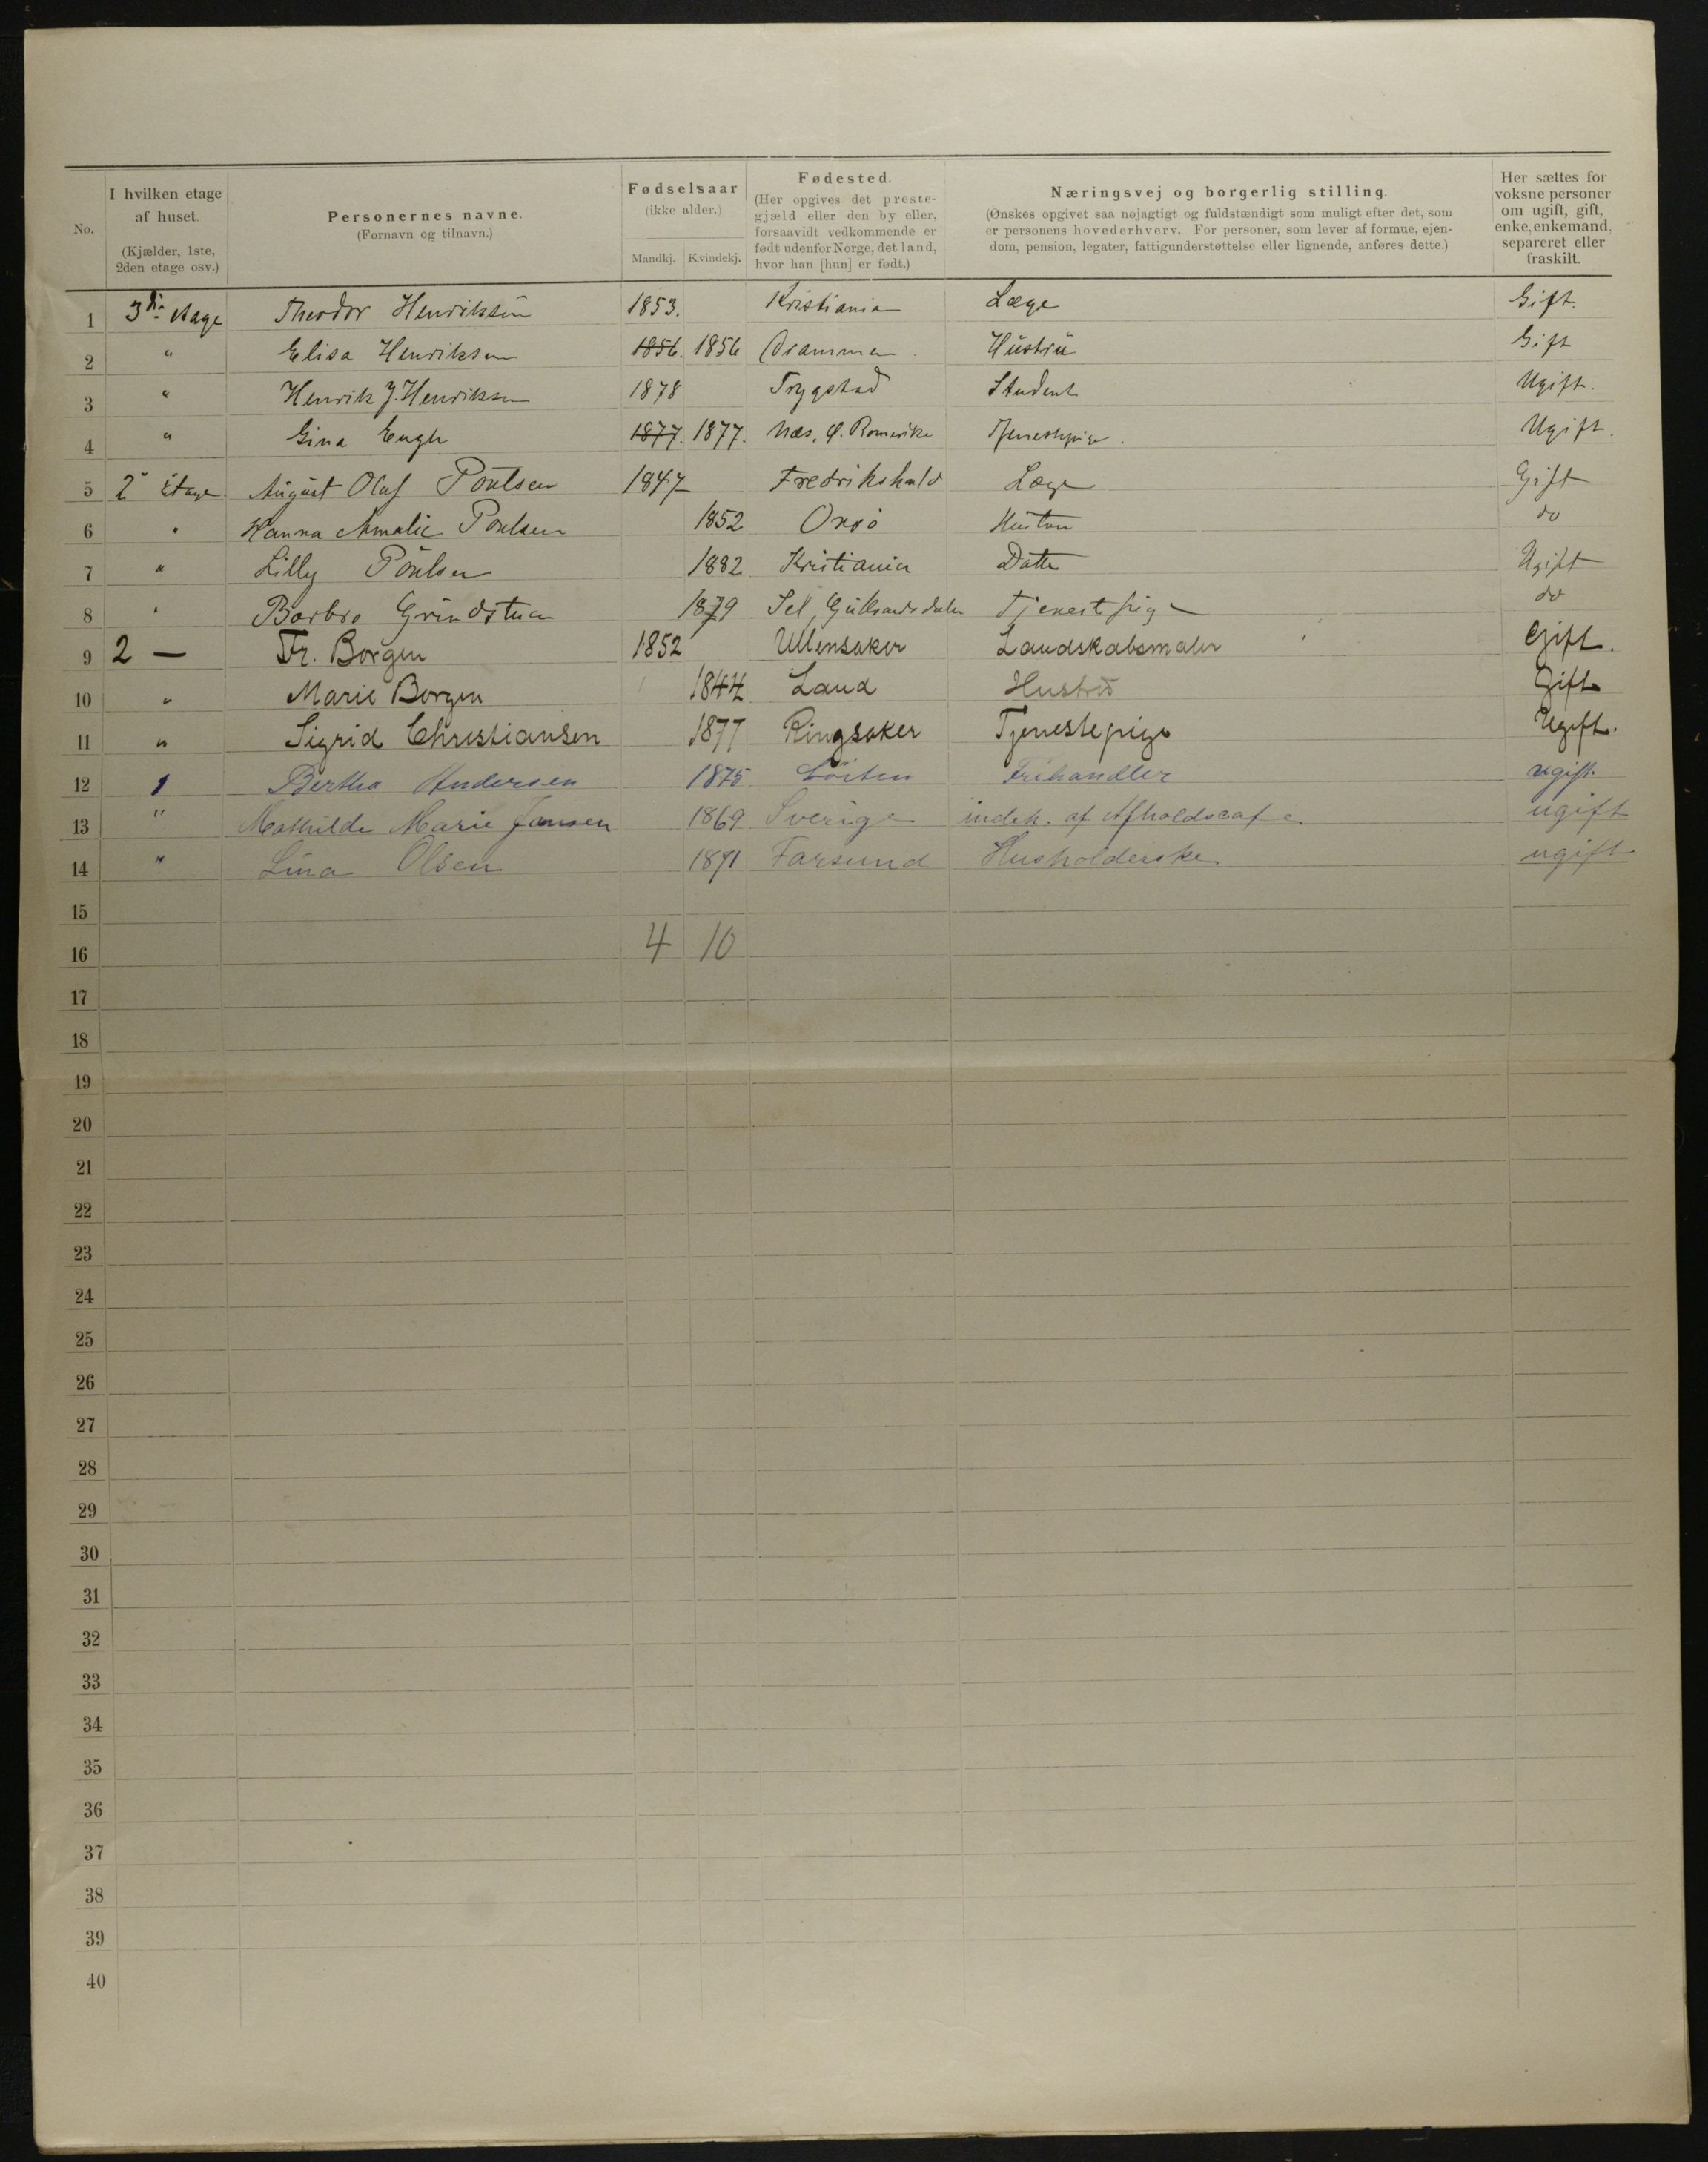 No.
I hvilken etage af huset. (Kjælder, 1ste, 2den etage osv.)
Personernes navne. (Fornavn og tilnavn.)
Fødselsaar (ikke alder.) Mandkj. Kvindekj.
Fødested. (Her opgives det prestegjæld eller den by eller, forsaavidt vedkommende er født udenfor Norge, det land, hvor han [hun] er født.)
Næringsvej og borgerlig stilling. (Ønskes opgivet saa nøjagtigt og fuldstændigt som muligt efter det, som er personens hovederhverv. For personer, som lever af formue, ejendom, pension, legater, fattigunderstøttelse eller lignende, anføres dette.)
Her sættes for voksne personer om ugift, gift, enke, enkemand, separeret eller fraskilt.
1 3die etage Theodor Henriksen 1853. Kristiania Læge Gift.
2 " Elisa Henriksen 1856. 1856 Drammen. Hustru Gift
3 " Henrik J. Henriksen 1878 Trygstad Student Ugift.
4 " Gina Engh 1877. 1877. Næs, Ø. Romerike Tjenestepige. Ugift.
5 2 Etage. August Olaf Poulsen 1847 Fredrikshald Læge Gift
6 " Hanna Amalie Poulsen 1852 Onsø Hustru do
7 " Lilly Poulsen 1882 Kristiania Datter Ugift
8 " Barbro Grindstuen 1879 Sel, Gulbrandsdalen Tjenestpige do
9 2 — Fr. Borgen 1852 Ullensaker Landskabsmaler Gift.
10 " Marie Borgen 1844 Land Hustru Gift
11 " Sigrid Christiansen 1877 Ringsaker Tjenestepige Ugift.
12 1 Bertha Andersen 1875 Löiten Frihandler ugift.
13 " Mathilde Marie Jansen 1869 Sverige indeh. af Afholdscafe ugift
14 " Lina Olsen 1871 Farsund Husholderske ugift
15
16 4 10
17
18
19
20
21
22
23
24
25
26
27
28
29
30
31
32
33
34
35
36
37
38
39
40